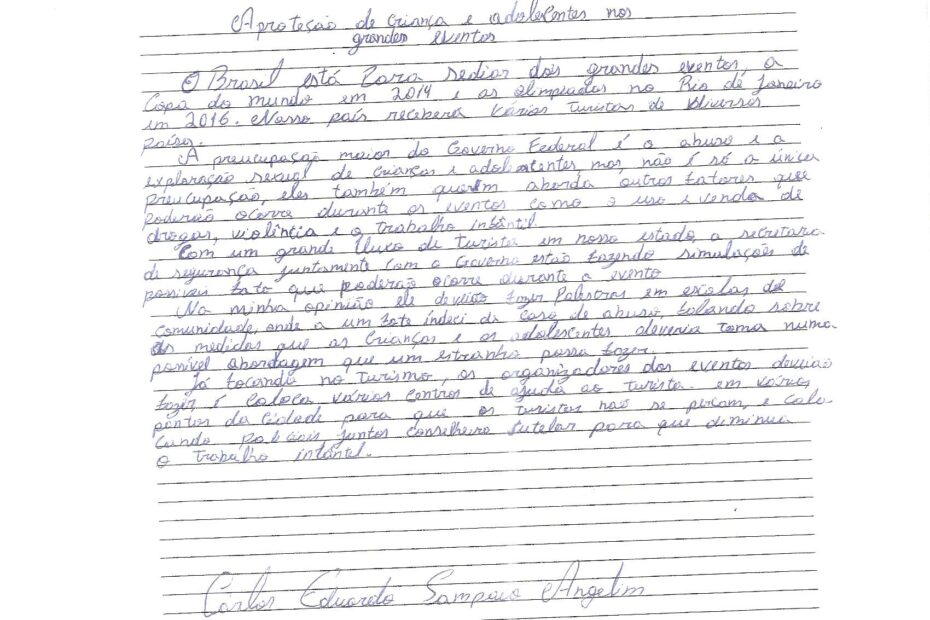 A proteção de criança e adolescentes nos
grandes eventos
O Brasil está Para sediar dois grandes eventos, a
Copa do mundo em 2014 e as olimpiadas no Rio de Janeiro
em 2016. Nosso país receberá Várias turistas de diversos
países.
A preucupação maior do Governo Federal é o abuso e a
exploração sexual de crianças e adolescentes, mas não é só a única
preucupação, eles também querem aborda outros fatores que
poderão ocorre durante os eventos como o uso e venda de
drogas, violência e o trabalho infântil.
Com um grande fluxo de turista em nosso estado, a secretaria
de segurança juntamente com o Governo estão fazendo simulações de
possíveis fato que poderão ocorre durante o evento
Na minha opinião ele devião fazer Palestras em escolas de
comunidade, onde a um fate índeci de caso de abuso, falando sobre
as medidas que as crianças e os adolescentes deveria toma numa
possível abordagem que um estranho possa fazer.
Já focando no turismo, os organizadores dos eventos devião
fazer, é coloca vários centros de ajuda ao turista. em vários
pontos da cidade para que os turistas não se percam, e colo
cando policiais juntos conselheiro tutelar para que diminua
o trabalho infântil.
Carlos Eduardo Sampaio Angelim